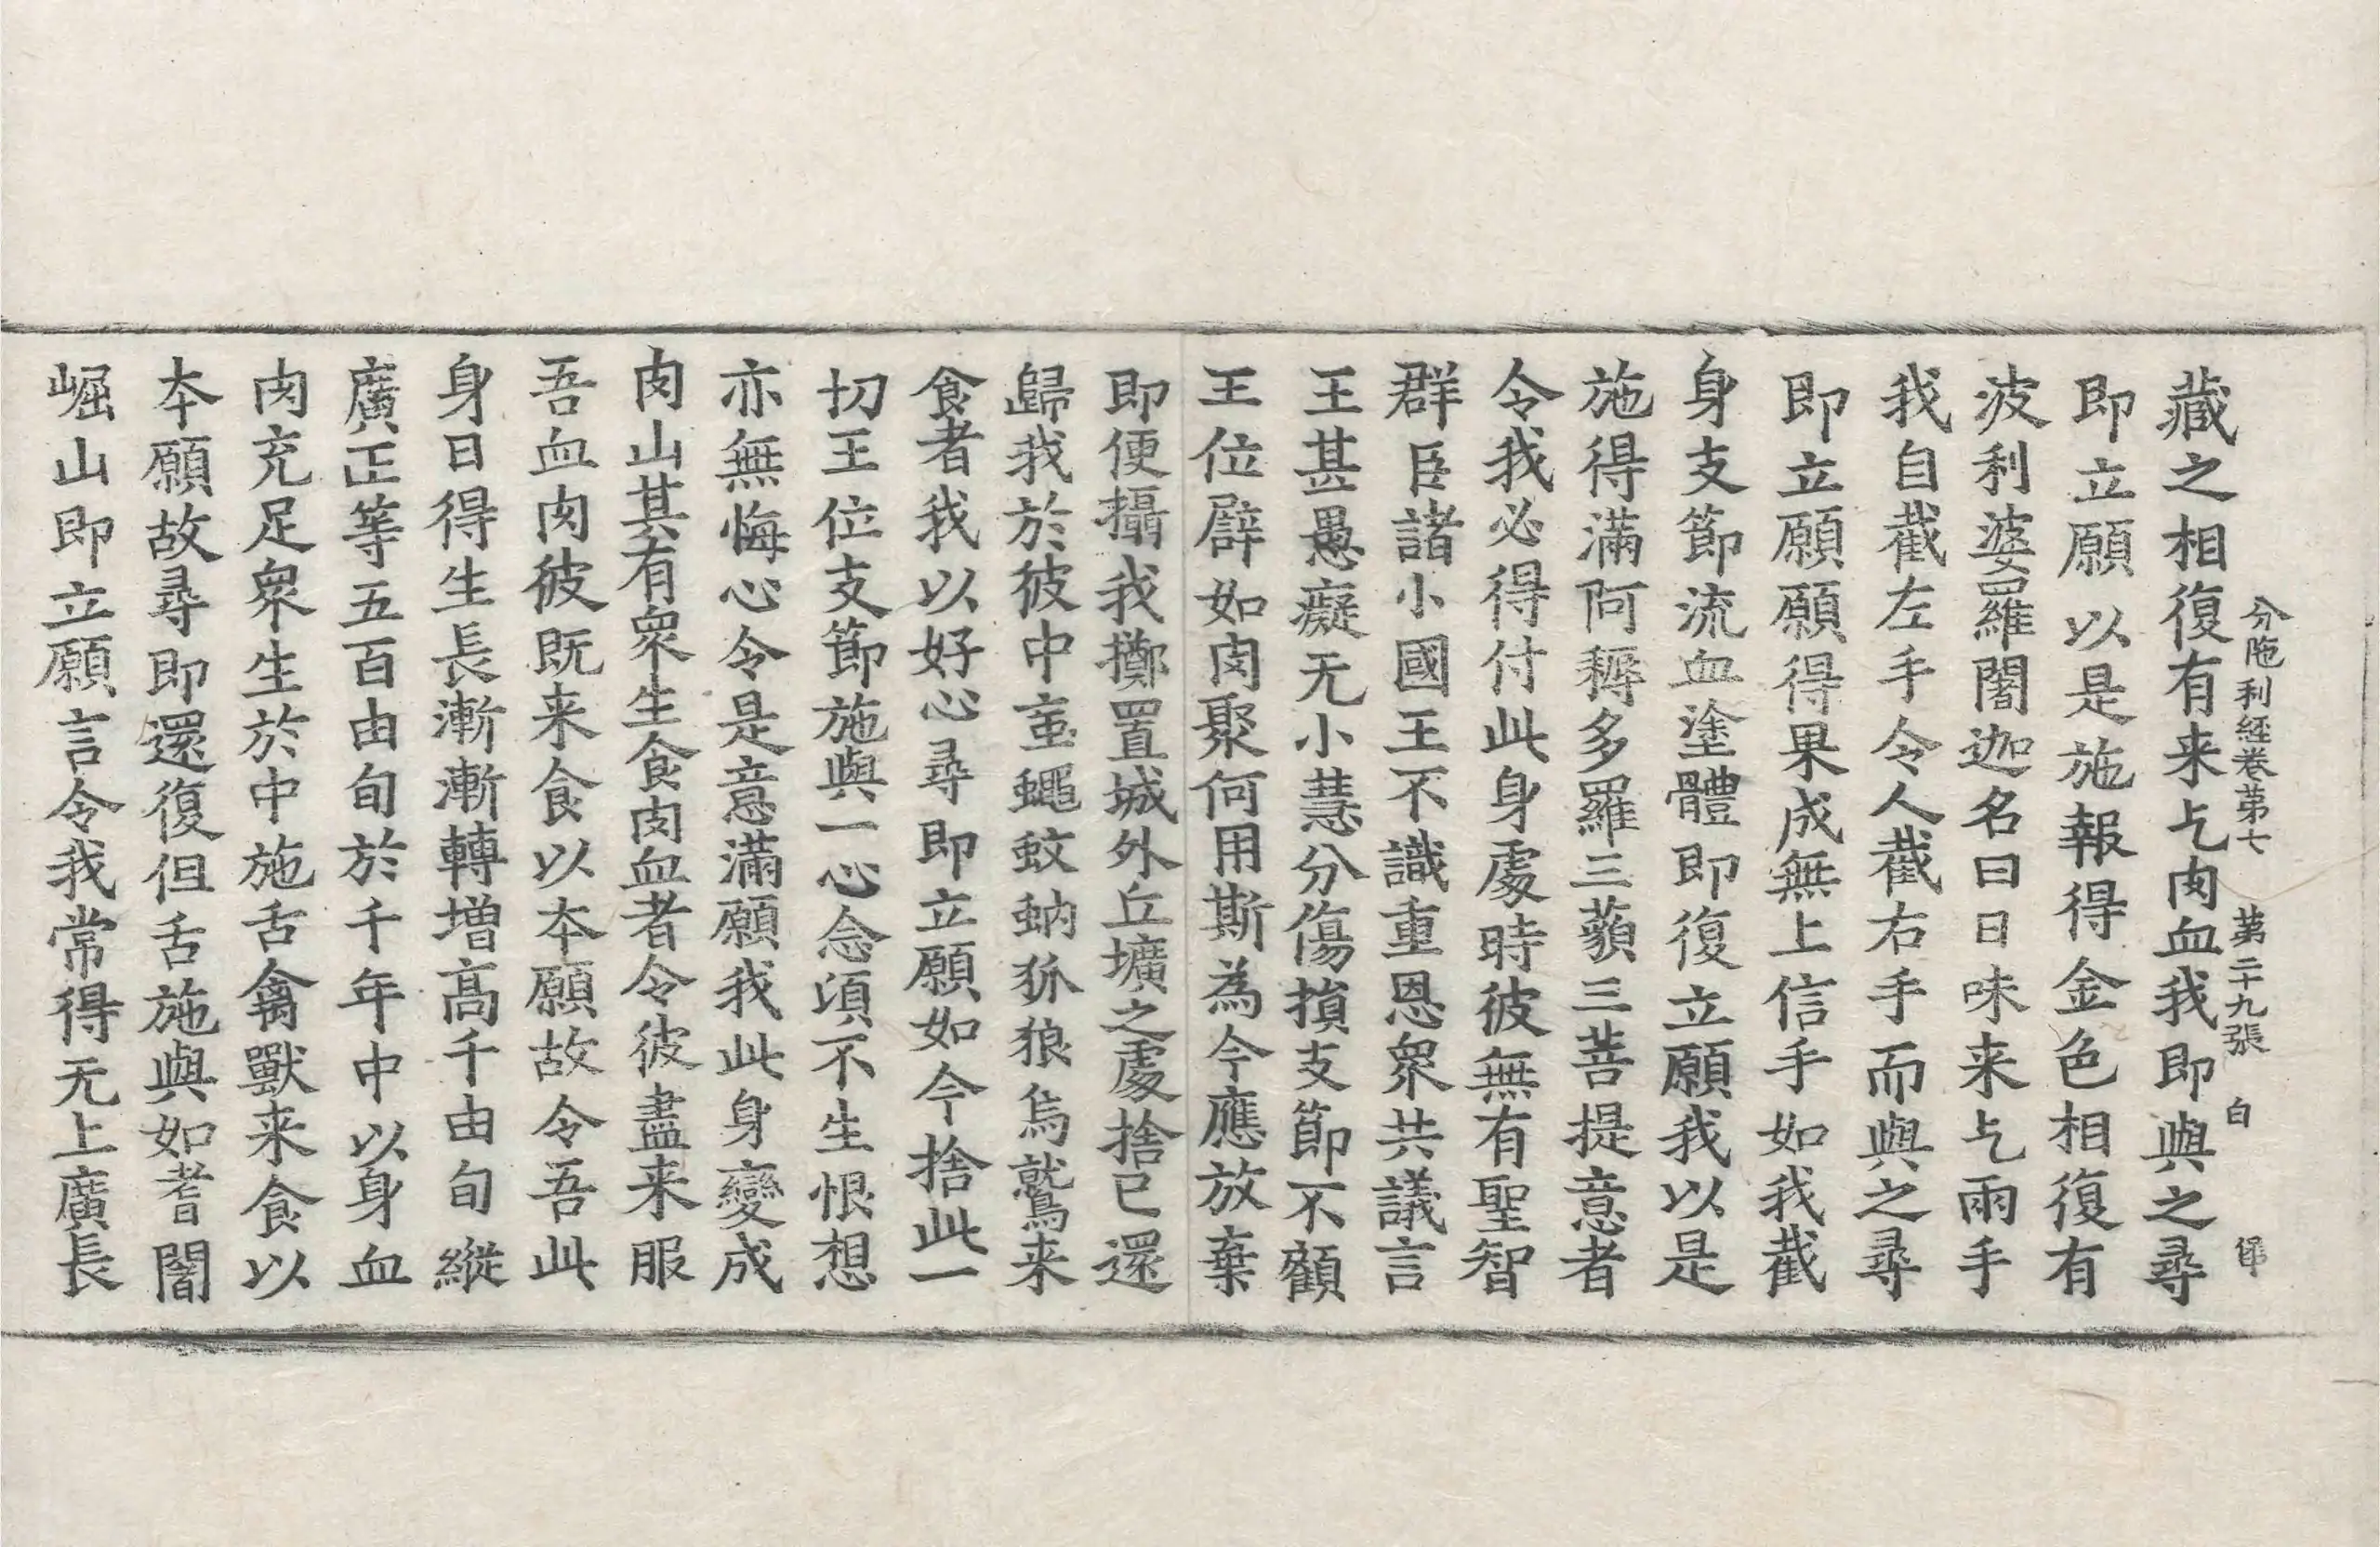 分陁利經卷第七 第二十九張 白
藏之相復有来乞肉血我即與之尋
即立願以是施報得金色相復有
波利婆羅闍迦名曰日味来乞兩手
我自截左手令人截右手而與之尋
即立願願得果成無上信手如我截
身支節流血塗體即復立願我以是
施得滿阿耨多羅三藐三菩提意者
令我必得付此身處時彼無有聖智
群臣諸小國王不識重恩衆共議言
王甚愚癡无小慧分傷損支節不顧
王位辟如肉聚何用斯為今應放棄
即便攝我擲置城外丘壙之處捨已還
歸我於彼中䖟蠅蚊蚋狖狼烏鷲来
食者我以好心尋即立願如今捨此一
切王位支節施與一心念須不生恨想
亦無悔心令是意滿願我此身變成
肉山其有衆生食肉血者令彼盡来服
吾血肉彼既来食以本願故令吾此
身日得生長漸漸轉增高千由旬縱
廣正等五百由旬於千年中以身血
肉充足衆生於中施舌禽獸来食以
本願故尋即還復但舌施與如耆闍
崛山即立願言令我常得无上廣長